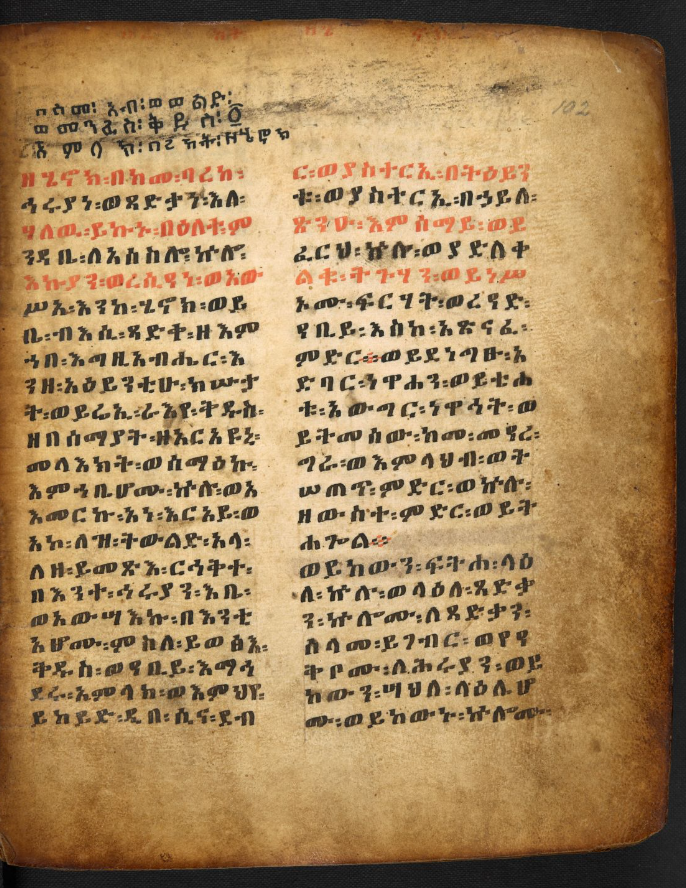 በስመ፡ አብ፡ወወልድ፡
ወመንፈስ፡ቅዱስ፡፩
አምላክ፡በረከት፡ዘሄኖክ
ዘሄኖክ፡በከመ፡ባረከ፡
ኅሩያነ፡ወጻድቃን፡እለ፡
ሃለዉ፡ይኩኑ፡በዕለቱ፡ም
ንዳቤ፡ለአሰስሎ፡ኵሎ፡
እኩያን፡ወረሲዓነ፡ወአው
ሥአ፡እንከ፡ሄኖክ፡ወይ
ቤ፡ብእሲ፡ጻድቅ፡ዘእም
ኀበ፡እግዚአብሔር፡እ
ንዘ፡አዕይንቲሁ፡ክሡታ
ት፡ወይሬኢ፡ራእየ፡ቅዱስ፡
ዘበሰማያት፡ዘአርአዩኒ፡
መላእክት፡ወሰማዕኩ፡
እምኀቤሆሙ፡ኵሎ፡ወአ
እመርኩ፡አነ፡እርአይ፡ወ
አኮ፡ለዝ፡ትውልድ፡አላ፡
ለዘ፡ይመጽኡ፡ርኁቅተ፡
በእንተ፡ኅሩያን፡እቤ፡
ወአውሣእኩ፡በእንቲ
አሆሙ፡ምስለ፡ይወፅእ፡
ቅዱስ፡ወዓቢይ፡እማኅ
ደሩ፡አምላከ፡ወእምህየ፡
ይከይድ፡ዲበ፡ሲና፡ደብ
ር፡ወያስተርኢ፡በትዕይን
ቱ፡ወያስተርኢ፡በኃይለ፡
ጽንዑ፡እምሰማይ፡ወይ
ፈርህ፡ኵሉ፡ወያድለቀ
ልቁ፡ትጉሃን፡ወይነሥ
ኦሙ፡ፍርሃት፡ወረዓድ፡
ዓቢይ፡እስከ፡አጽናፈ፡
ምድር፡ወይደነግፁ፡አ
ድባር፡ነዋኃን፡ወይቴሐ
ቱ፡አውግር፡ነዋኅት፡ወ
ይትመሰው፡ከመ፡መዓረ፡
ግራ፡ወእምላህብ፡ወት
ሠጠጥ፡ምድር፡ወኵሉ፡
ዘውስተ፡ምድር፡ወይት
ሐጐል፡
ወይከውን፡ፍትሐ፡ላዕ
ለ፡ኵሉ፡ወላዕለ፡ጻድቃ
ን፡ኵሎሙ፡ለጻድቃን፡
ሰላመ፡ይገብር፡ወየዓ
ቅቦሙ፡ለኅሩያን፡ወይ
ከውን፡ሣህለ፡ላዕሌሆ
ሙ፡ወይከውኑ፡ኵሎሙ፡
102